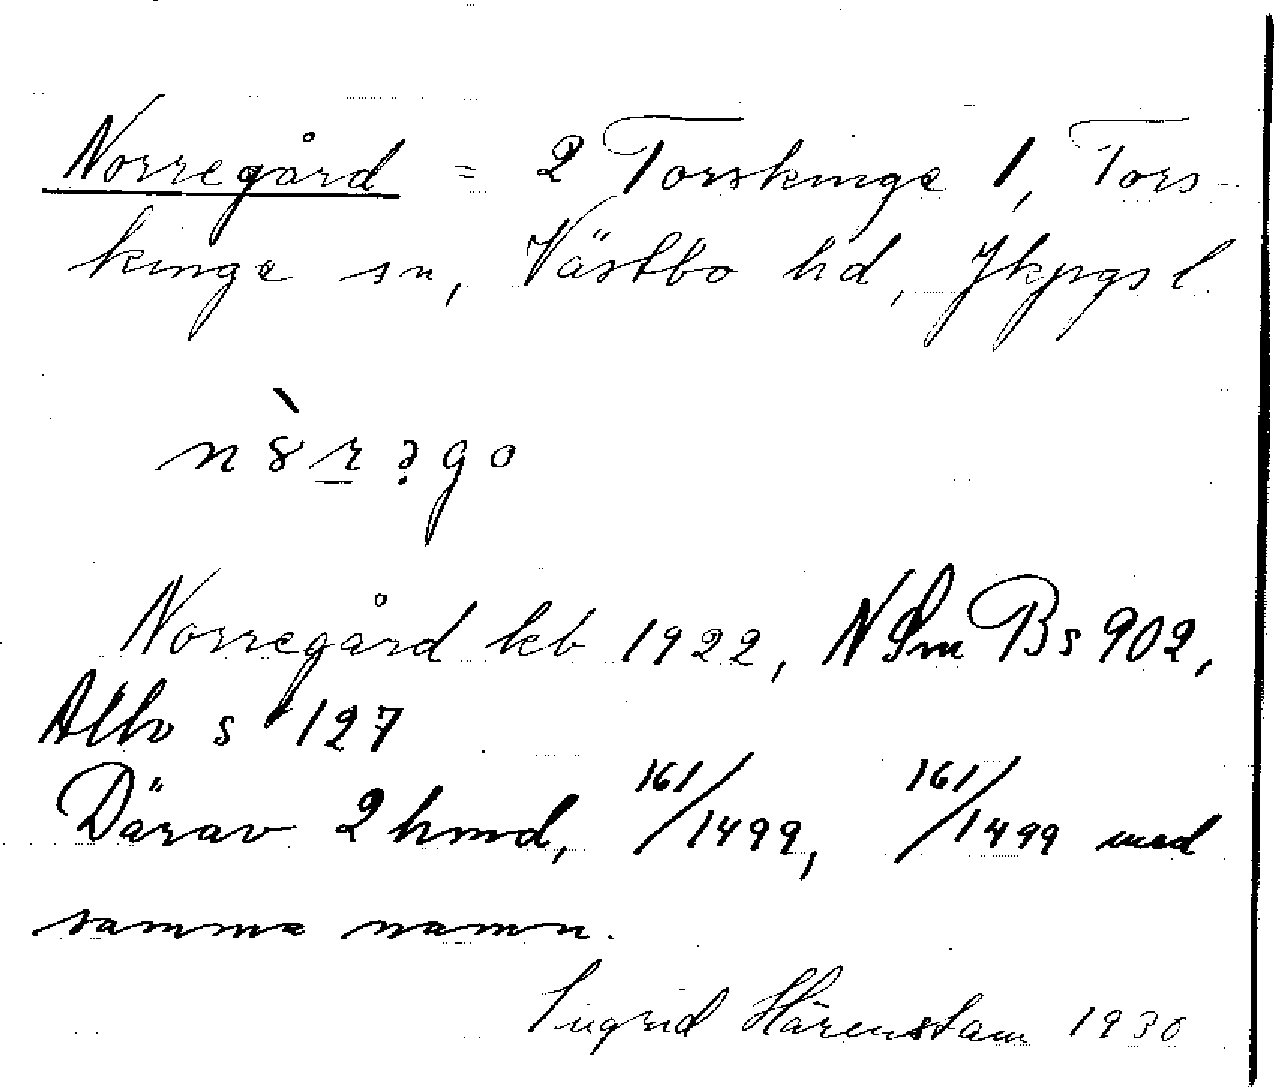 Norregård = 2 Torskinge 1, Tors-
kinge sn, Västbo hd, Jkpgs l.
Norregård kb 1922, N Sm Bs 902,
Allbo s 127
Därav 2 hmd, 161/1499, 161/1499 med
samma namn.
Ingrid Härenstam 1930